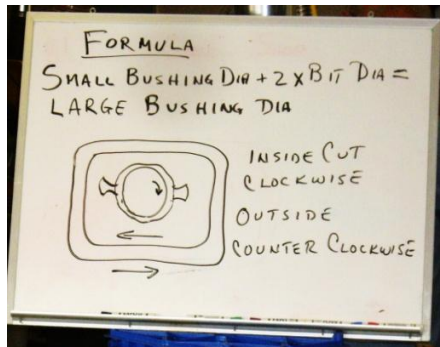 FORMULA
SMALL BUSHING DIA + 2 x BIT DIA =
LARGE BUSHING DIA
INSIDE CUT
CLOCKWISE
OUTSIDE
COUNTER CLOCKWISE